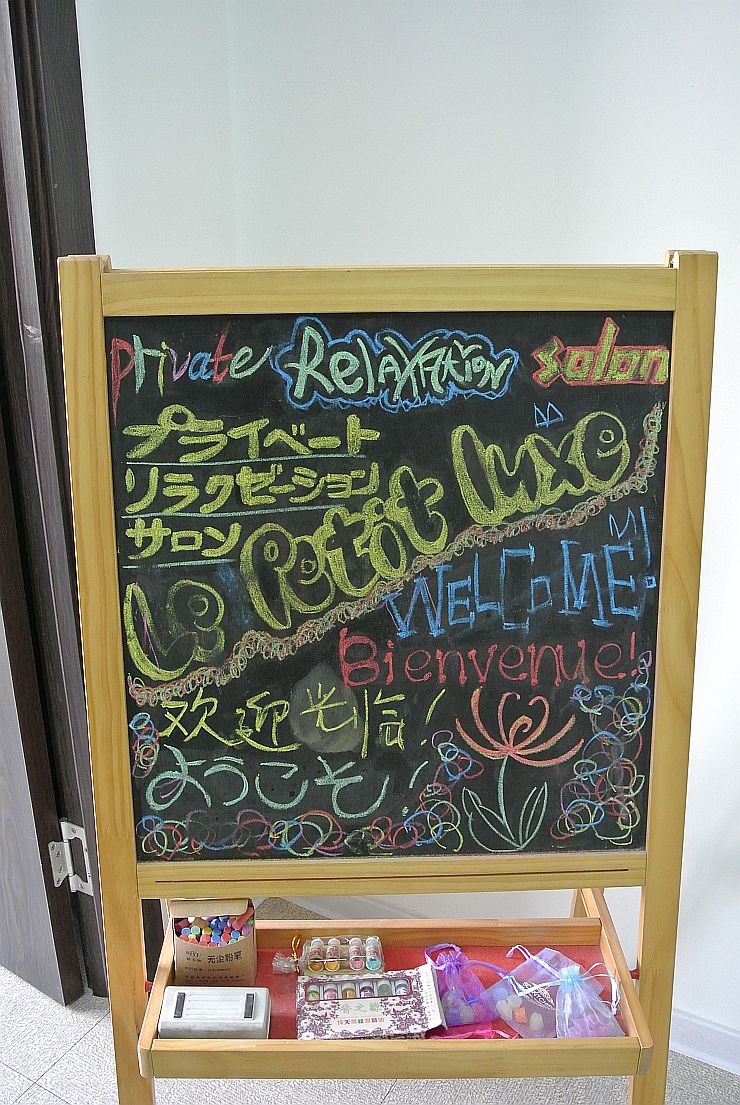 private Relaxation salon
プライベート
リラクゼーション
サロン
Le Petit luxe
WELCOME!
Bienvenue!
欢迎光临!
ようこそ!
无尘粉笔